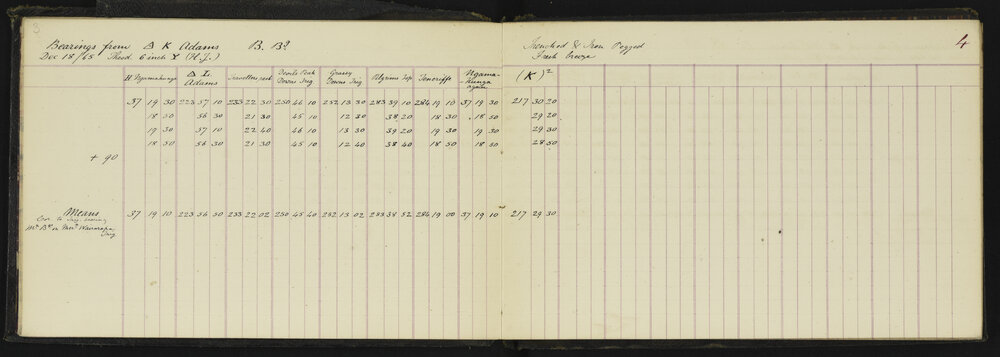 Bearings from Δ K Adams B. Bd. Trenched & Iron Pegged 4
Dec 18/65 Theod 6 inch Y (H.J.) Fresh breeze
H Ngamahunga Δ L Adams Travellers rest Devils Peak Downs Trig Grassy Downs Trig Pilgrims Top Teneriffe Ngamahunga again (K)2
37 19 30 223 57 10 233 22 30 250 46 10 252 13 30 283 39 10 284 19 10 37 19 30 217 30 20
18 50 56 30 21 30 45 10 12 30 38 20 18 30 18 50 29 20
19 30 57 10 22 40 46 10 13 30 39 20 19 30 19 30 29 30
18 50 56 30 21 30 45 10 12 40 38 40 18 50 18 50 28 50
+ 90
Means 37 19 10 223 56 50 233 22 02 250 45 40 252 13 02 283 38 52 284 19 00 37 19 10 217 29 30
Corr. to Trig. bearing
Wairarapa
Trig